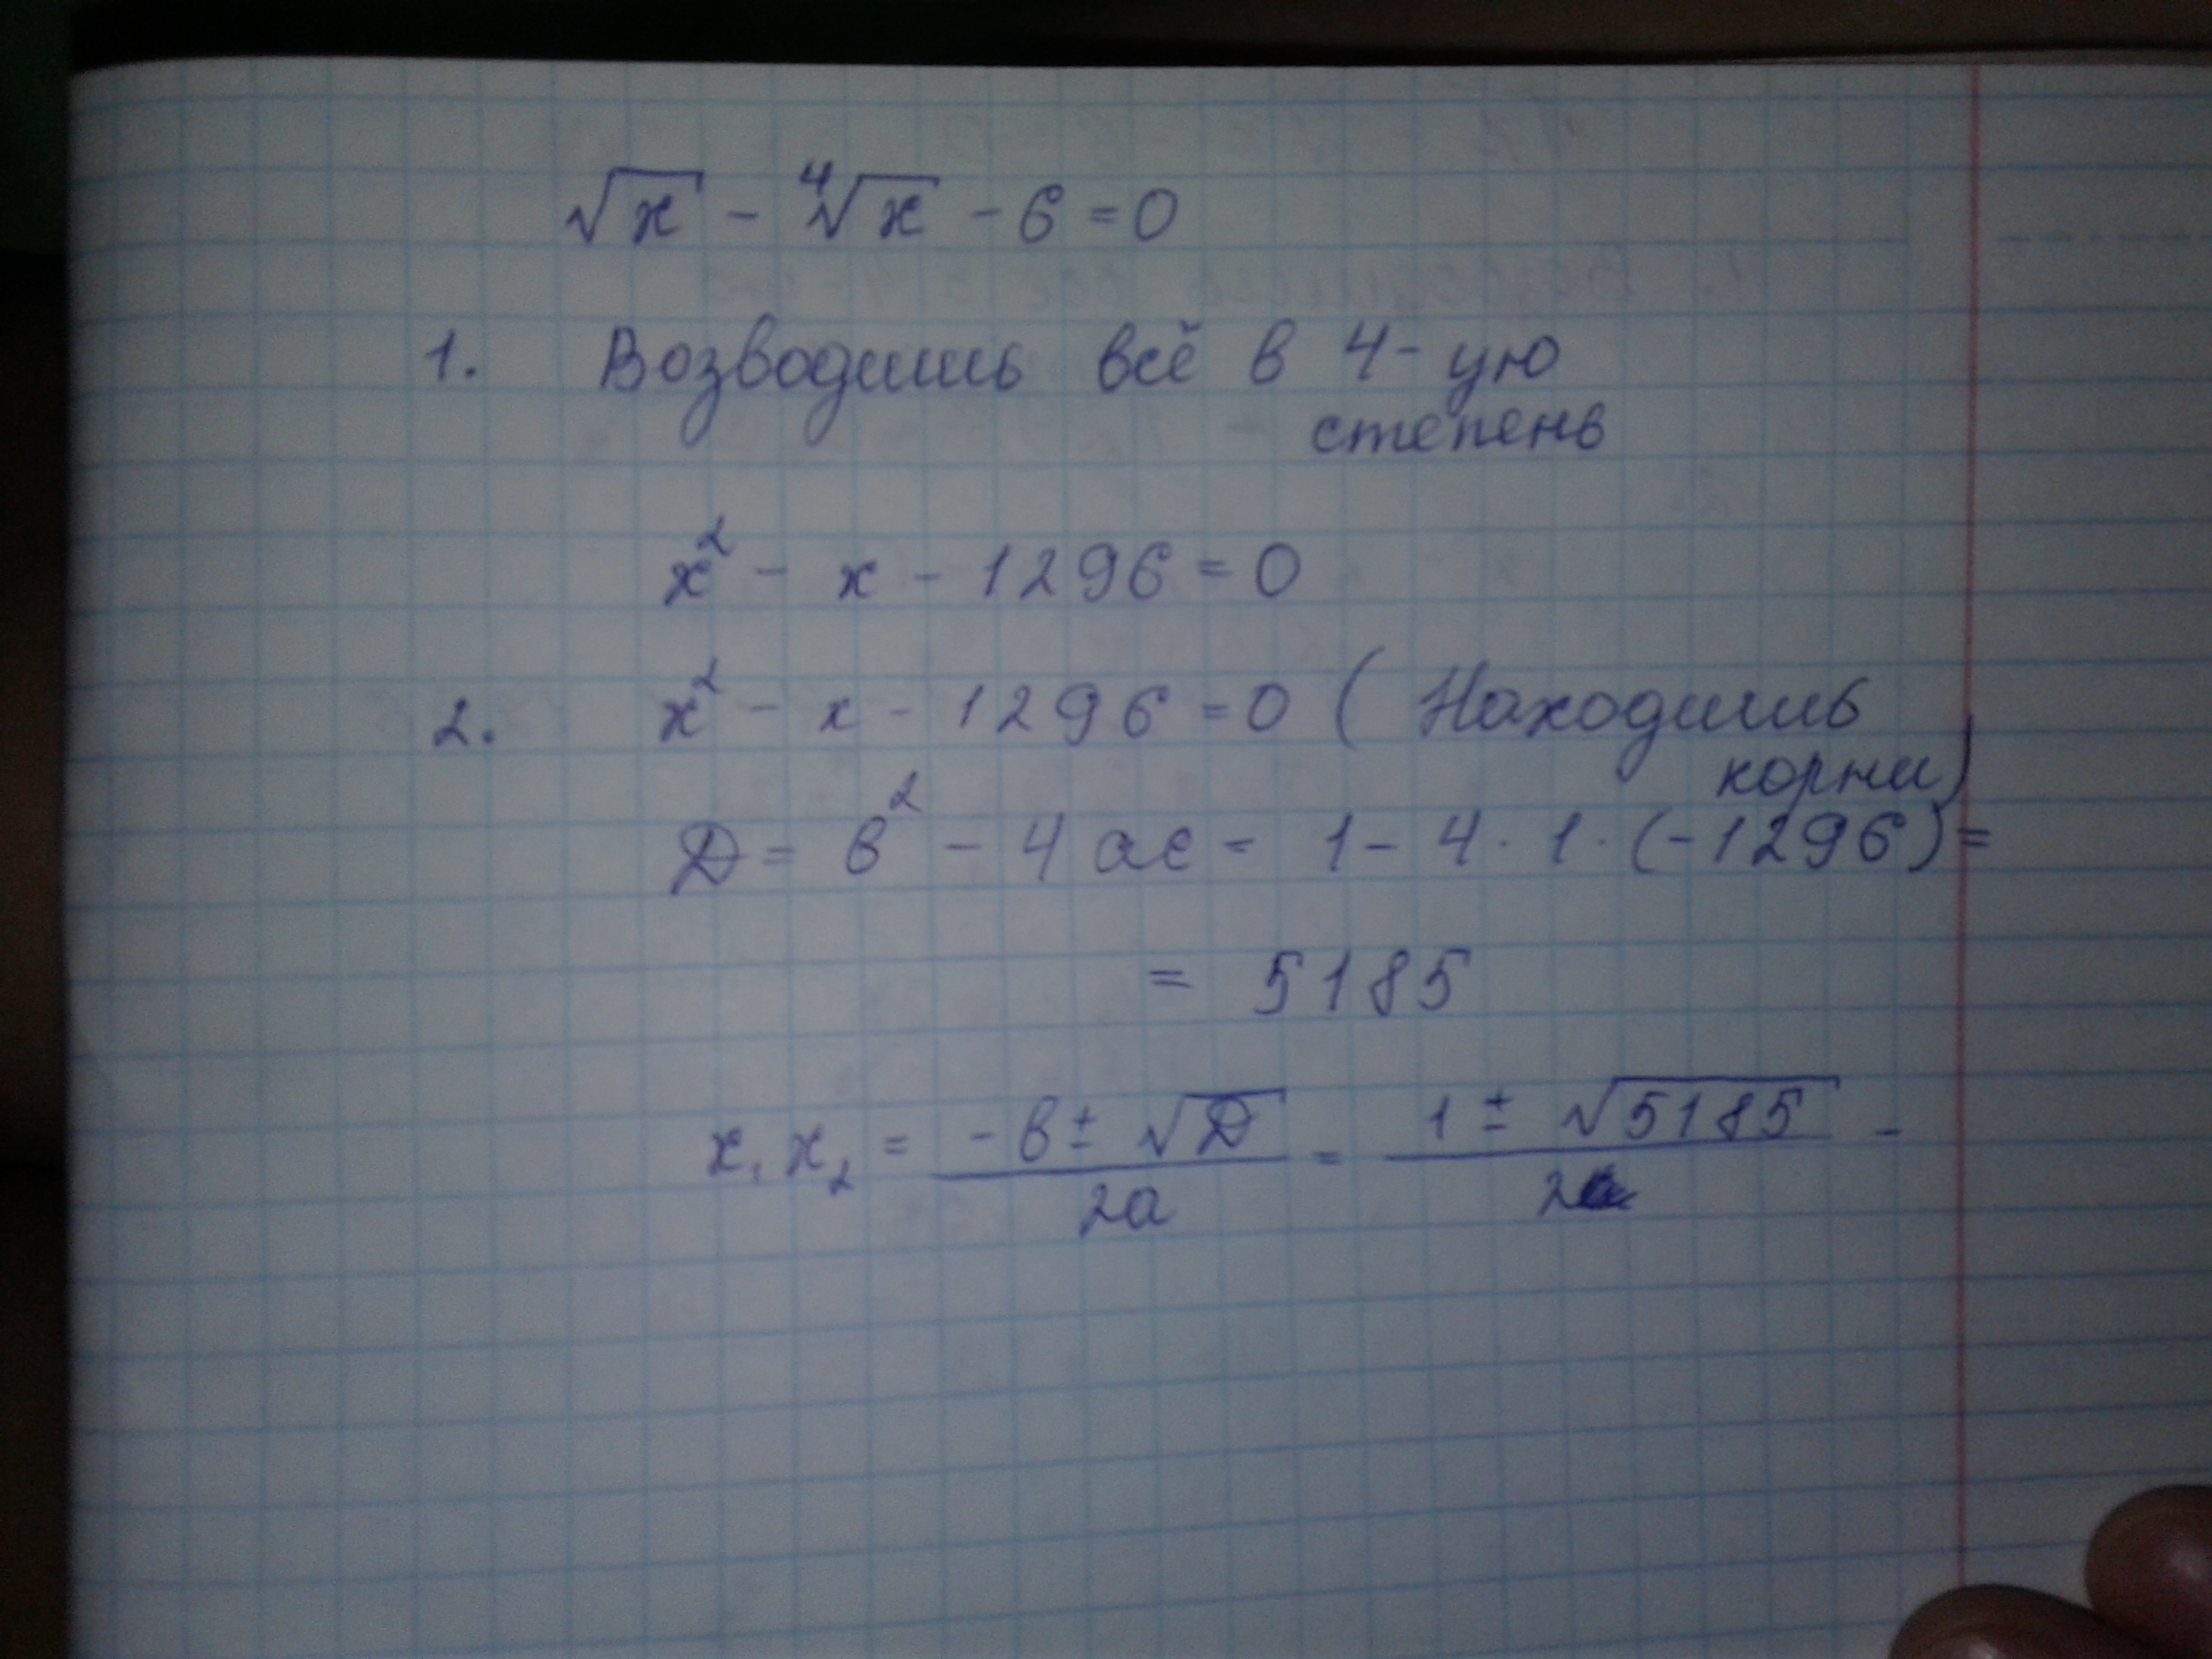 √x - ⁴√x - 6 = 0
1. Возводишь всё в 4-ую
степень
x² - x - 1296 = 0
2. x² - x - 1296 = 0 (Находишь
корни)
D = b² - 4ac = 1 - 4 · 1 · (-1296) =
= 5185
x₁ x₂ = (-b ± √D) / 2a = (1 ± √5185) / 2 -